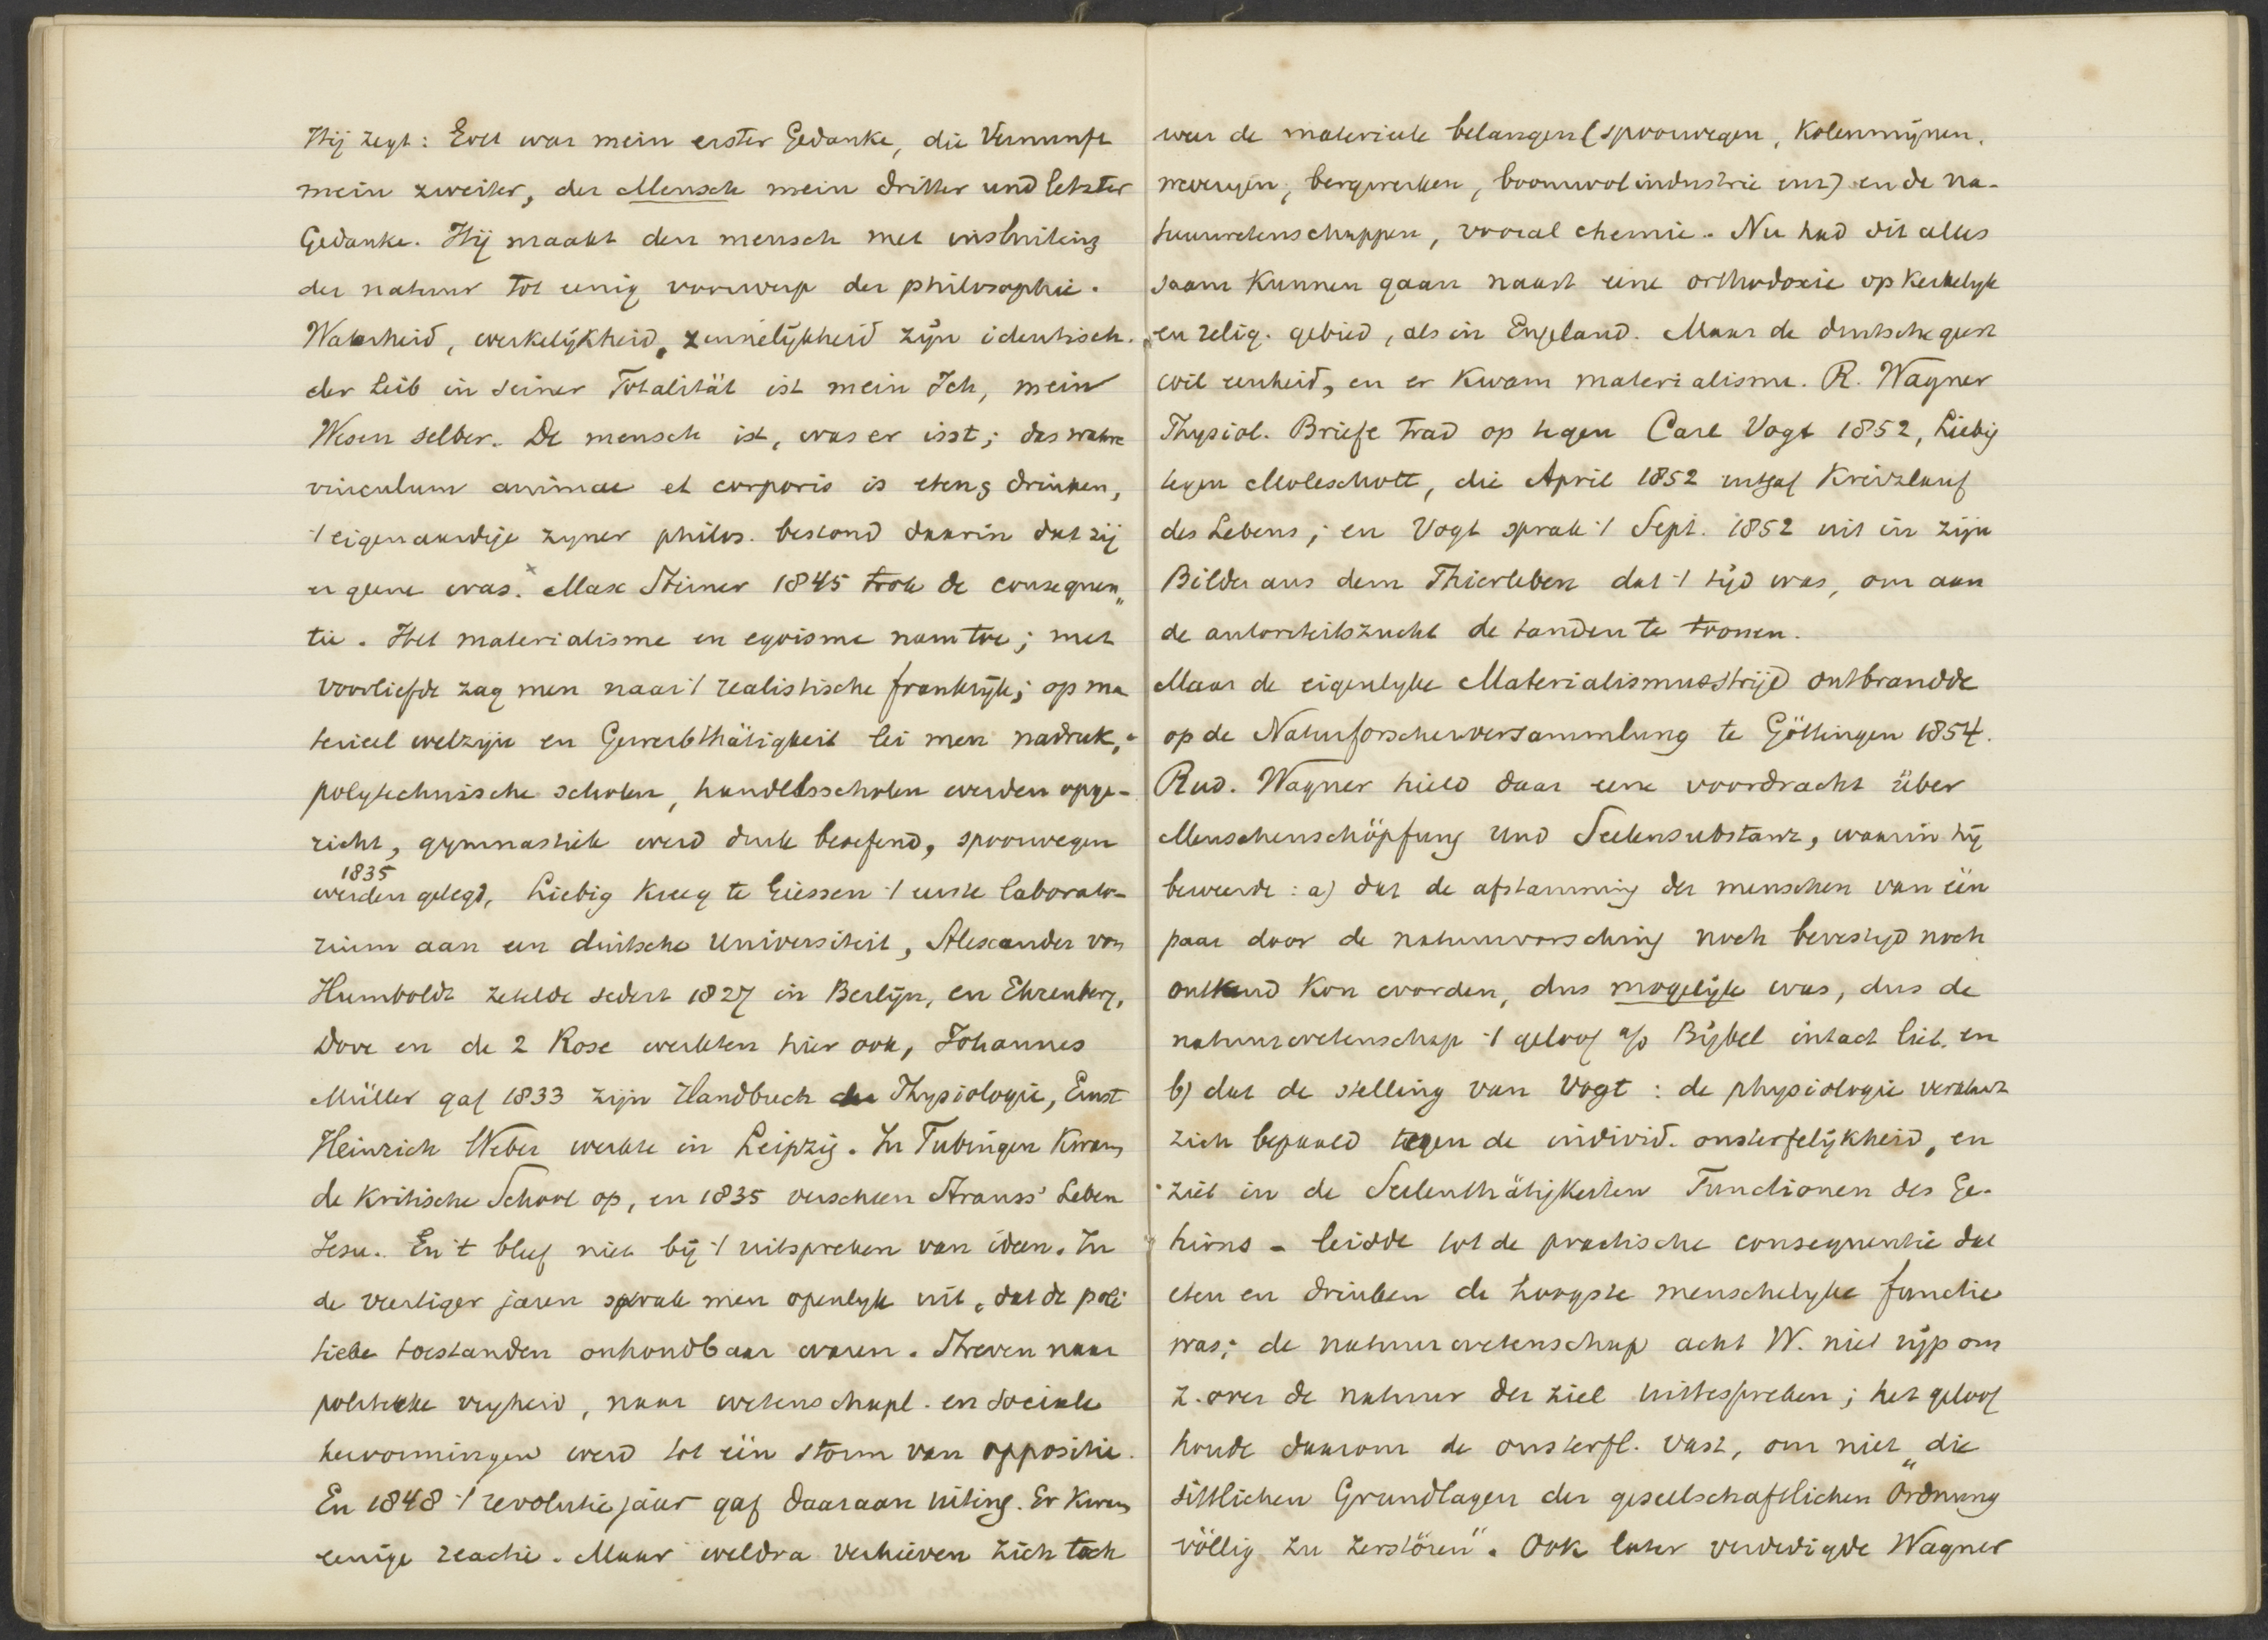 Hij zegt: Gott war mein erster Gedanke, die Vernunft
mein zweiter, der Mensch mein dritter und letzter
Gedanke. Hij maakt den mensch met insluiting
der natuur tot eenig voorwerp der philosophie.
Waarheid, werkelijkheid, zinnelijkheid zijn identisch.
der Leib in seiner Totalität ist mein Ich, mein
Wesen selber. De mensch ist, was er isst; das wahre
vinculum animae et corporis is eten & drinken,
't eigenaardige zyner philos. bestond daarin dat zij
er geene was.× Max Stirner 1845 trok de consequen„
tie. Het materialisme en egoisme nam toe; met
voorliefde zag men naar 't realistische frankrijk; op ma
terieel welzijn en Gewerbthätigkeit lei men nadruk,
polytechnische scholen, handelsscholen werden opge-
richt, gymnastiek werd druk beoefend, spoorwegen
1835
werden gelegd, Liebig kreeg te Giessen 't eerste laborato-
rium aan een duitsche Universiteit, Alexander von
Humboldt zetelde sedert 1827 in Berlijn, en Ehrenberg,
Dove en de 2 Rose werkten hier ook, Johannes
Müller gaf 1833 zijn Handbuch der Physiologie, Ernst
Heinrich Weber werkte in Leipzig. In Tubingen kwam
de kritische School op, en 1835 verscheen Strauss' Leben
Jesu. En 't bleef niet bij 't uitspreken van ideen. In
de veertiger jaren sprak men openlyk uit, dat de poli
tieke toestanden onhoudbaar waren. Streven naar
politieke vryheid, naar wetenschapl. en sociale
hervormingen werd tot één storm van oppositie.
En 1848 't revolutiejaar gaf daaraan uiting. Er kwam
eenige reactie. Maar weldra verhieven zich toch
weer de materieele belangen (spoorwegen, kolenmijnen,
bergwerken, boomwolindustrie enz) en de na-
tuurwetenschappen, vooral chemie. Nu had dit alles
saam kunnen gaan naast eene orthodoxie op kerkelyk
en relig. gebied, als in Engeland. Maar de duitsche geest
wil eenheid, en er kwam materialisme. R. Wagner
Physiol. Briefe trad op tegen Carl Vogt 1852, Liebig
tegen Moleschott, die April 1852 uitgaf Kreislauf
des Lebens; en Vogt sprak 't Sept. 1852 uit in zijn
Bilder aus dem Thierleben dat 't tijd was, om aan
de autoriteitszucht de tanden te toonen.
Maar de eigenlyke Materialismusstrijd ontbrandde
op de Naturforscherversammlung te Göttingen 1854.
Rud. Wagner hield daar eene voordracht über
Menschenschöpfung und Seelensubstanz, waarin hij
beweerde: a) dat de afstamming der menschen van één
paar door de natuurvorsching noch bevestigd noch
ontkend kon worden, dus mogelijk was, dus de
natuurwetenschap 't geloof a/d Bijbel intact liet. en
b) dat de stelling van Vogt: de physiologie verklaart
zich bepaald tegen de individ. onsterfelijkheid, en
ziet in de Seelenthätigkeiten Functionen des Ge-
hirns - leidde tot de practische consequentie dat
eten en drinken de hoogste menschelyke functie
was; de natuurwetenschap acht W. niet rijp om
z. over de natuur der ziel uittespreken; het geloof
houde daarom de onsterfl. vast, om niet „die
sittlichen Grundlagen der gesellschaftlichen Ordnung
völlig zu zerstören". Ook later verdedigde Wagner